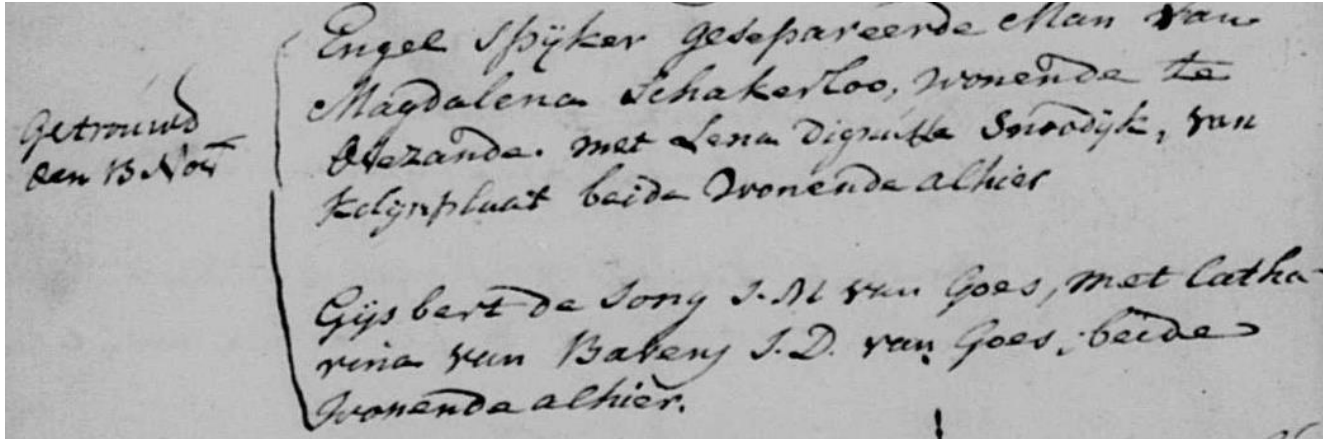 Getrouwd
den 13 Nov
Engel Spijker gesepareerde Man van
Magdalena Schakerloo, wonende te
Ovezande. met Lena Snoodijk, van
Kolijnplaat beide wonende alhier
Gijsbert de Jong J.M van Goes, met Catha-
rina van Barens J.D. van Goes, beide
wonende alhier.